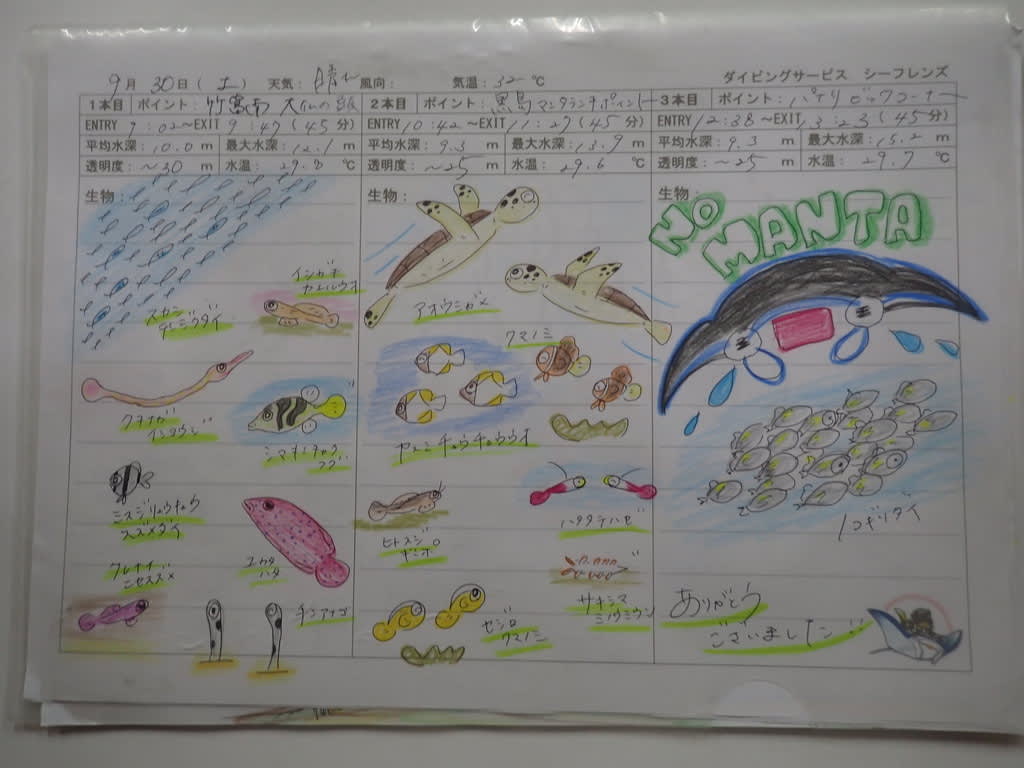 9月 30日(土) 天気: 晴れ 風向: 気温: 32 ℃
ダイビングサービス シーフレンズ
1本目 ポイント: 竹富南 大仏の
ENTRY 9:02~EXIT 9:47(45分)
平均水深: 10.0 m 最大水深: 12.1 m
透明度: ~30 m 水温: 29.8 ℃
生物:
スカシ
テンジクダイ
イシガキ
カエルウオ
クチナガ
イシヨウジ
シマキンチャク
フグ
ミスジリュウキュウ
スズメダイ
ユカタ
ハタ
クレナイ
ニセスズメ
チンアナゴ
2本目 ポイント: 黒島マンタランチポイント
ENTRY 10:42~EXIT 11:27(45分)
平均水深: 9.3 m 最大水深: 13.9 m
透明度: ~25 m 水温: 29.6 ℃
生物:
アオウミガメ
クマノミ
ヤリカタギ
ハタタテハゼ
ヒトスジ
ギンポ
サキシマ
ミノウミウシ
セジロ
クマノミ
3本目 ポイント: パナリ ビッグコーナー
ENTRY 12:38~EXIT 13:23(45分)
平均水深: 9.3 m 最大水深: 15.2 m
透明度: ~25 m 水温: 29.7 ℃
生物:
NO
MANTA
ノコギリダイ
ありがとう
ございました